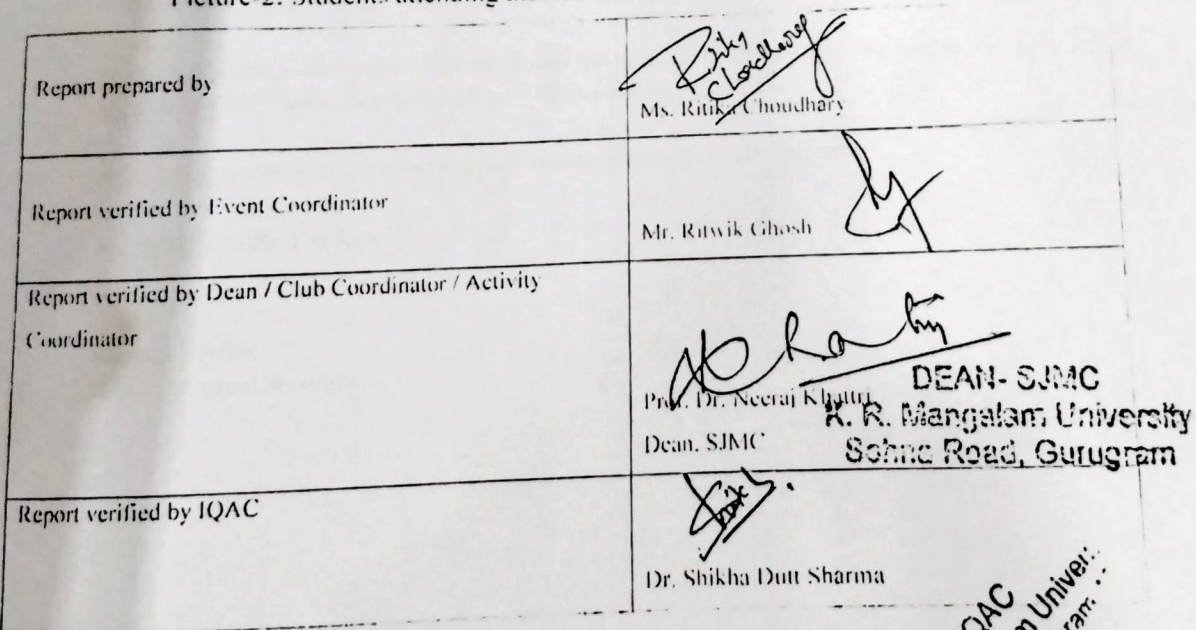 Picture-2: Students attending the
Report prepared by
Ritika
Choudhary
Ms. Ritika Choudhary
Report verified by Event Coordinator
Mr. Ritwik Ghosh
Report verified by Dean / Club Coordinator / Activity
Coordinator
Prof. Dr. Neeraj Khattri
Dean, SJMC
DEAN- SJMC
K. R. Mangalam University
Sohna Road, Gurugram
Report verified by IQAC
Dr. Shikha Dutt Sharma
IQAC